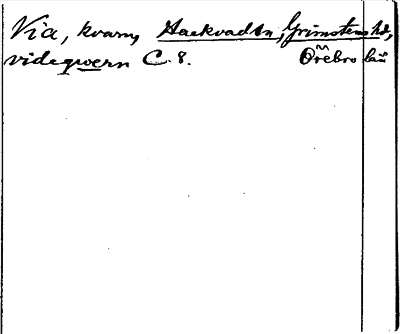 Via, kvarn, Hackvad sn, Grimstens hd,
videqwern C. 8. Örebro län